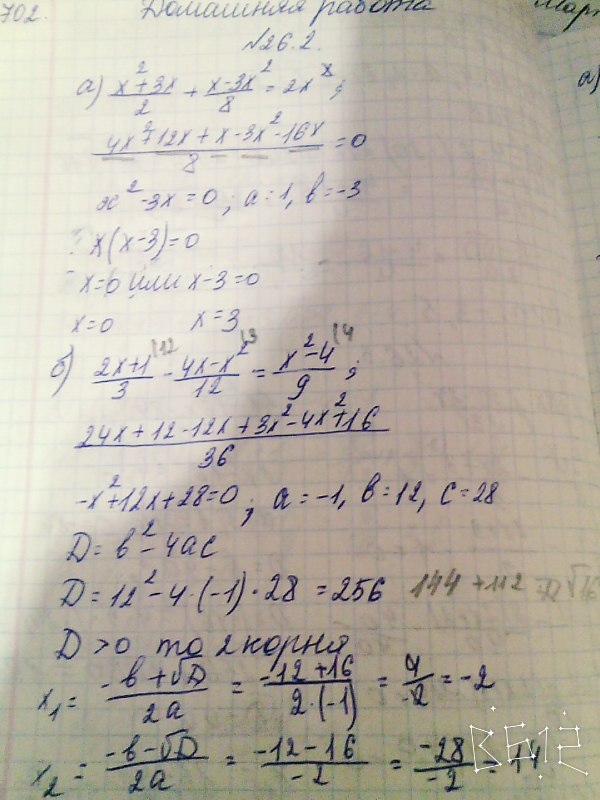 702. Домашняя работа
№26.2.
а) (x²+3x)/2 + (x-3x²)/8 = 2x ;
(4x²+12x+x-3x²-16x)/8 = 0
x²-3x=0 ; a=1, b=-3
x(x-3)=0
x=0 или x-3=0
x=0 x=3
б) (2x+1)/3 |12 - (4x-x²)/12 |3 = (x²-4)/9 |4 ;
(24x+12-12x+3x²-4x²+16)/36
-x²+12x+28=0 ; a=-1, b=12, c=28
D=b²-4ac
D=12²-4·(-1)·28=256 144+112
D>0 то 2 корня
x₁= (-b+√D)/2a = (-12+16)/(2·(-1)) = 4/-2 = -2
x₂= (-b-√D)/2a = (-12-16)/-2 = -28/-2 = 14
а)